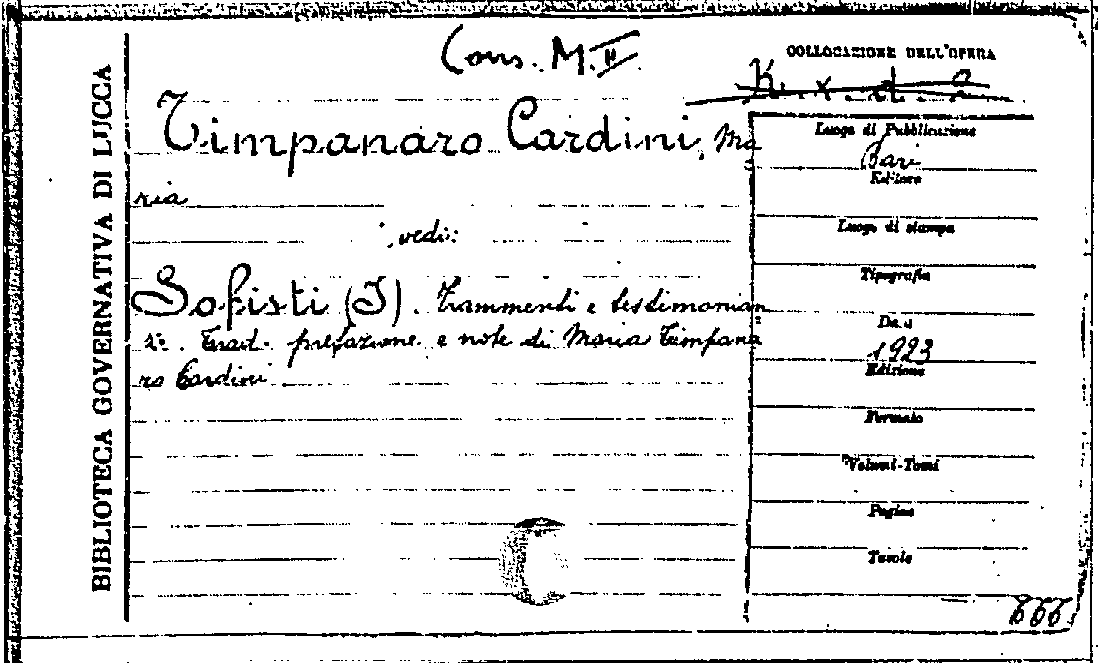 BIBLIOTECA GOVERNATIVA DI LUCCA
Cons. M. II.
COLLOCAZIONE DELL'OPERA
Timpanaro Cardini, Ma
ria
vedi:
Sofisti (I). Frammenti e testimonian
ze. Trad. prefazione e note di Maria Timpana
ro Cardini
Luogo di Pubblicazione
Bari
Editore
Luogo di stampa
Tipografia
Data
1923
Edizione
Formato
Volumi-Tomi
Pagine
Tavole